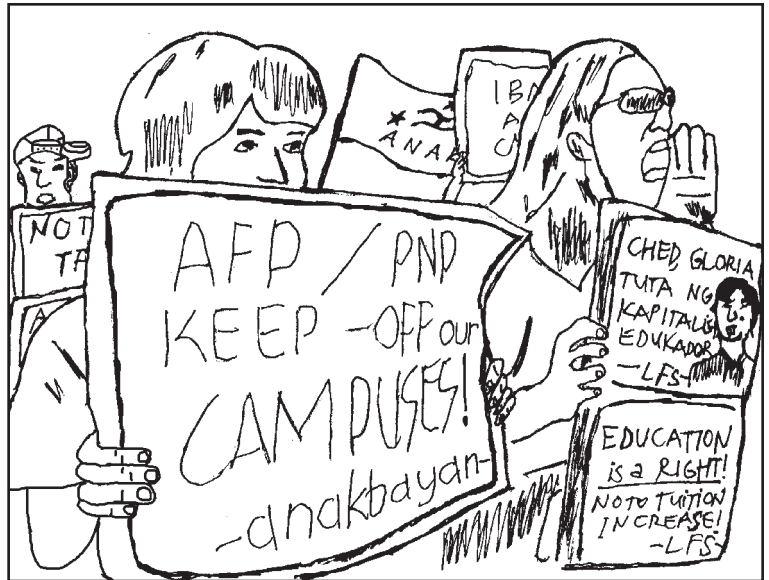 NOT
AFP / PNP
KEEP -OFF our
CAMPUSES!
-anakbayan-
CHED, GLORIA
TUTA NG
KAPITALIS
EDUKADOR
-LFS-
EDUCATION
is a RIGHT!
NO TO TUITION
INCREASE!
-LFS-